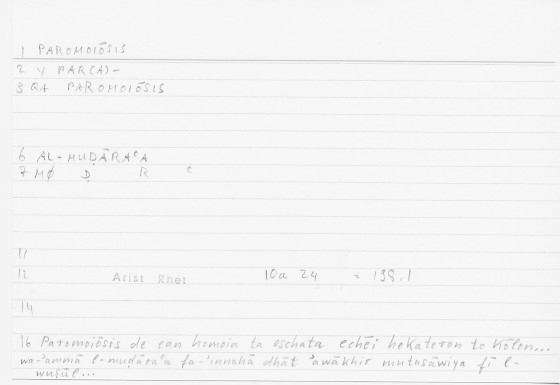 1 PAROMOIŌSIS
2 √ PAR(A)-
3 QA PAROMOIŌSIS
6 AL-MUḌĀRAʿA
7 Mφ Ḍ R ʿ
11
12 Arist Rhet 10a 24 = 198.1
14
16 Paromoiōsis de ean homoia ta eschata echēi hekateron to kōlon...
wa-ʾammā l-muḍāraʿa fa-ʾinnahā dhāt ʾawākhir mutasāwiya fī l-
wuṣūl...